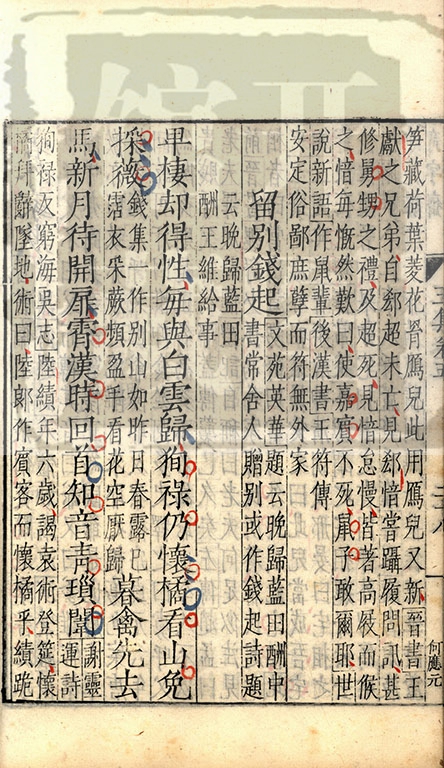 笋藏荷葉菱花胷鴈兒此用鴈兒又新晉書王
獻之兄弟自郄超未亡見郄愔嘗躡履問訊甚
修舅甥之禮及超死見愔怠慢皆著高屐而候
之愔每慨然歎曰使嘉賓不死鼠子敢爾耶世
說新語作鼠輩後漢書王符傳
安定俗鄙庶孽而符無外家
留別錢起
文苑英華題云晚歸藍田酬中
書常舍人贈別或作錢起詩題
云晚歸藍田
酬王維給事
卑棲却得性每與白雲歸徇祿仍懷橘看山免
採薇
錢集一作別山如昨日春露已
霑衣采蕨頻盈手看花空厭歸
暮禽先去
馬新月待開扉霄漢時回首知音青瑣闈
謝靈
運詩
徇祿反窮海吳志陸績年六歲謁袁術登筵懷
橘拜辭墜地術曰陸郎作賓客而懷橘乎績跪
何應元